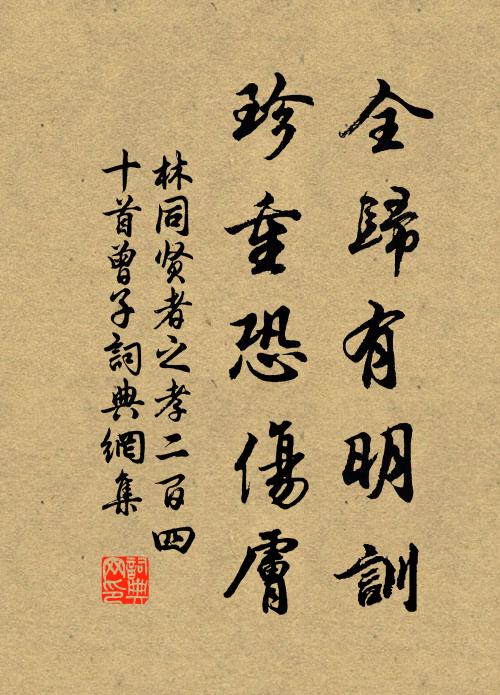 全歸有明訓
珍重恐傷膚
林同贤者之孝二百四
十首曾子詞典網集
詞典
网印